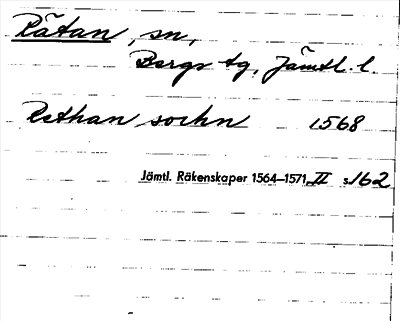 Rätan, sn,
Bergs tg, Jämtl. l.
Rethan sochn 1568
Jämtl. Räkenskaper 1564–1571, II s. 162